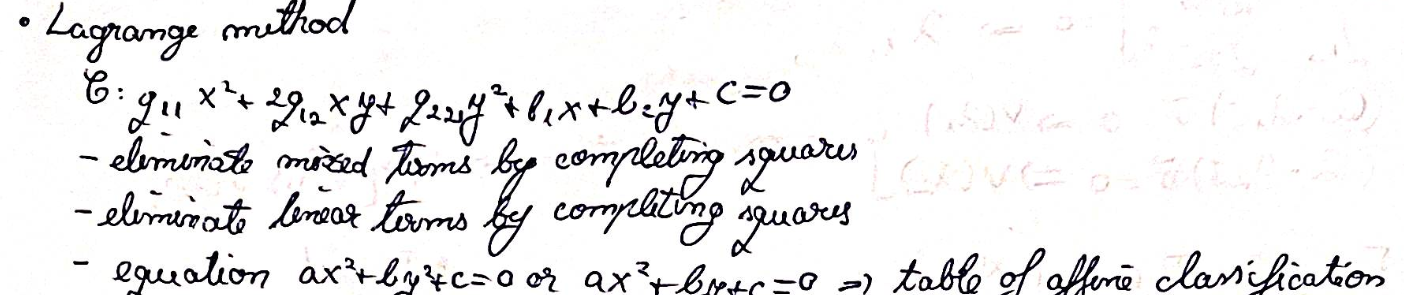 • Lagrange method
C: g₁₁ x² + 2g₁₂ xy + g₂₂ y² + b₁x + b₂y + c = 0
- eliminate mixed terms by completing squares
- eliminate linear terms by completing squares
- equation ax²+by²+c=0 or ax²+by+c=0 => table of affine classification